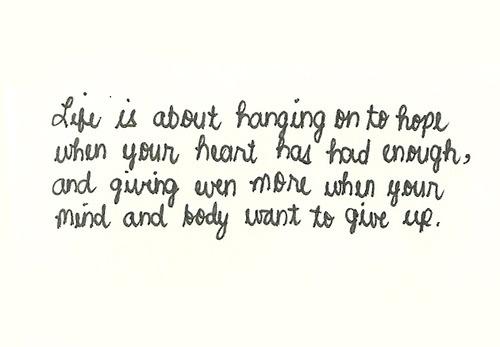 Life is about hanging on to hope
when your heart has had enough,
and giving even more when your
mind and body want to give up.